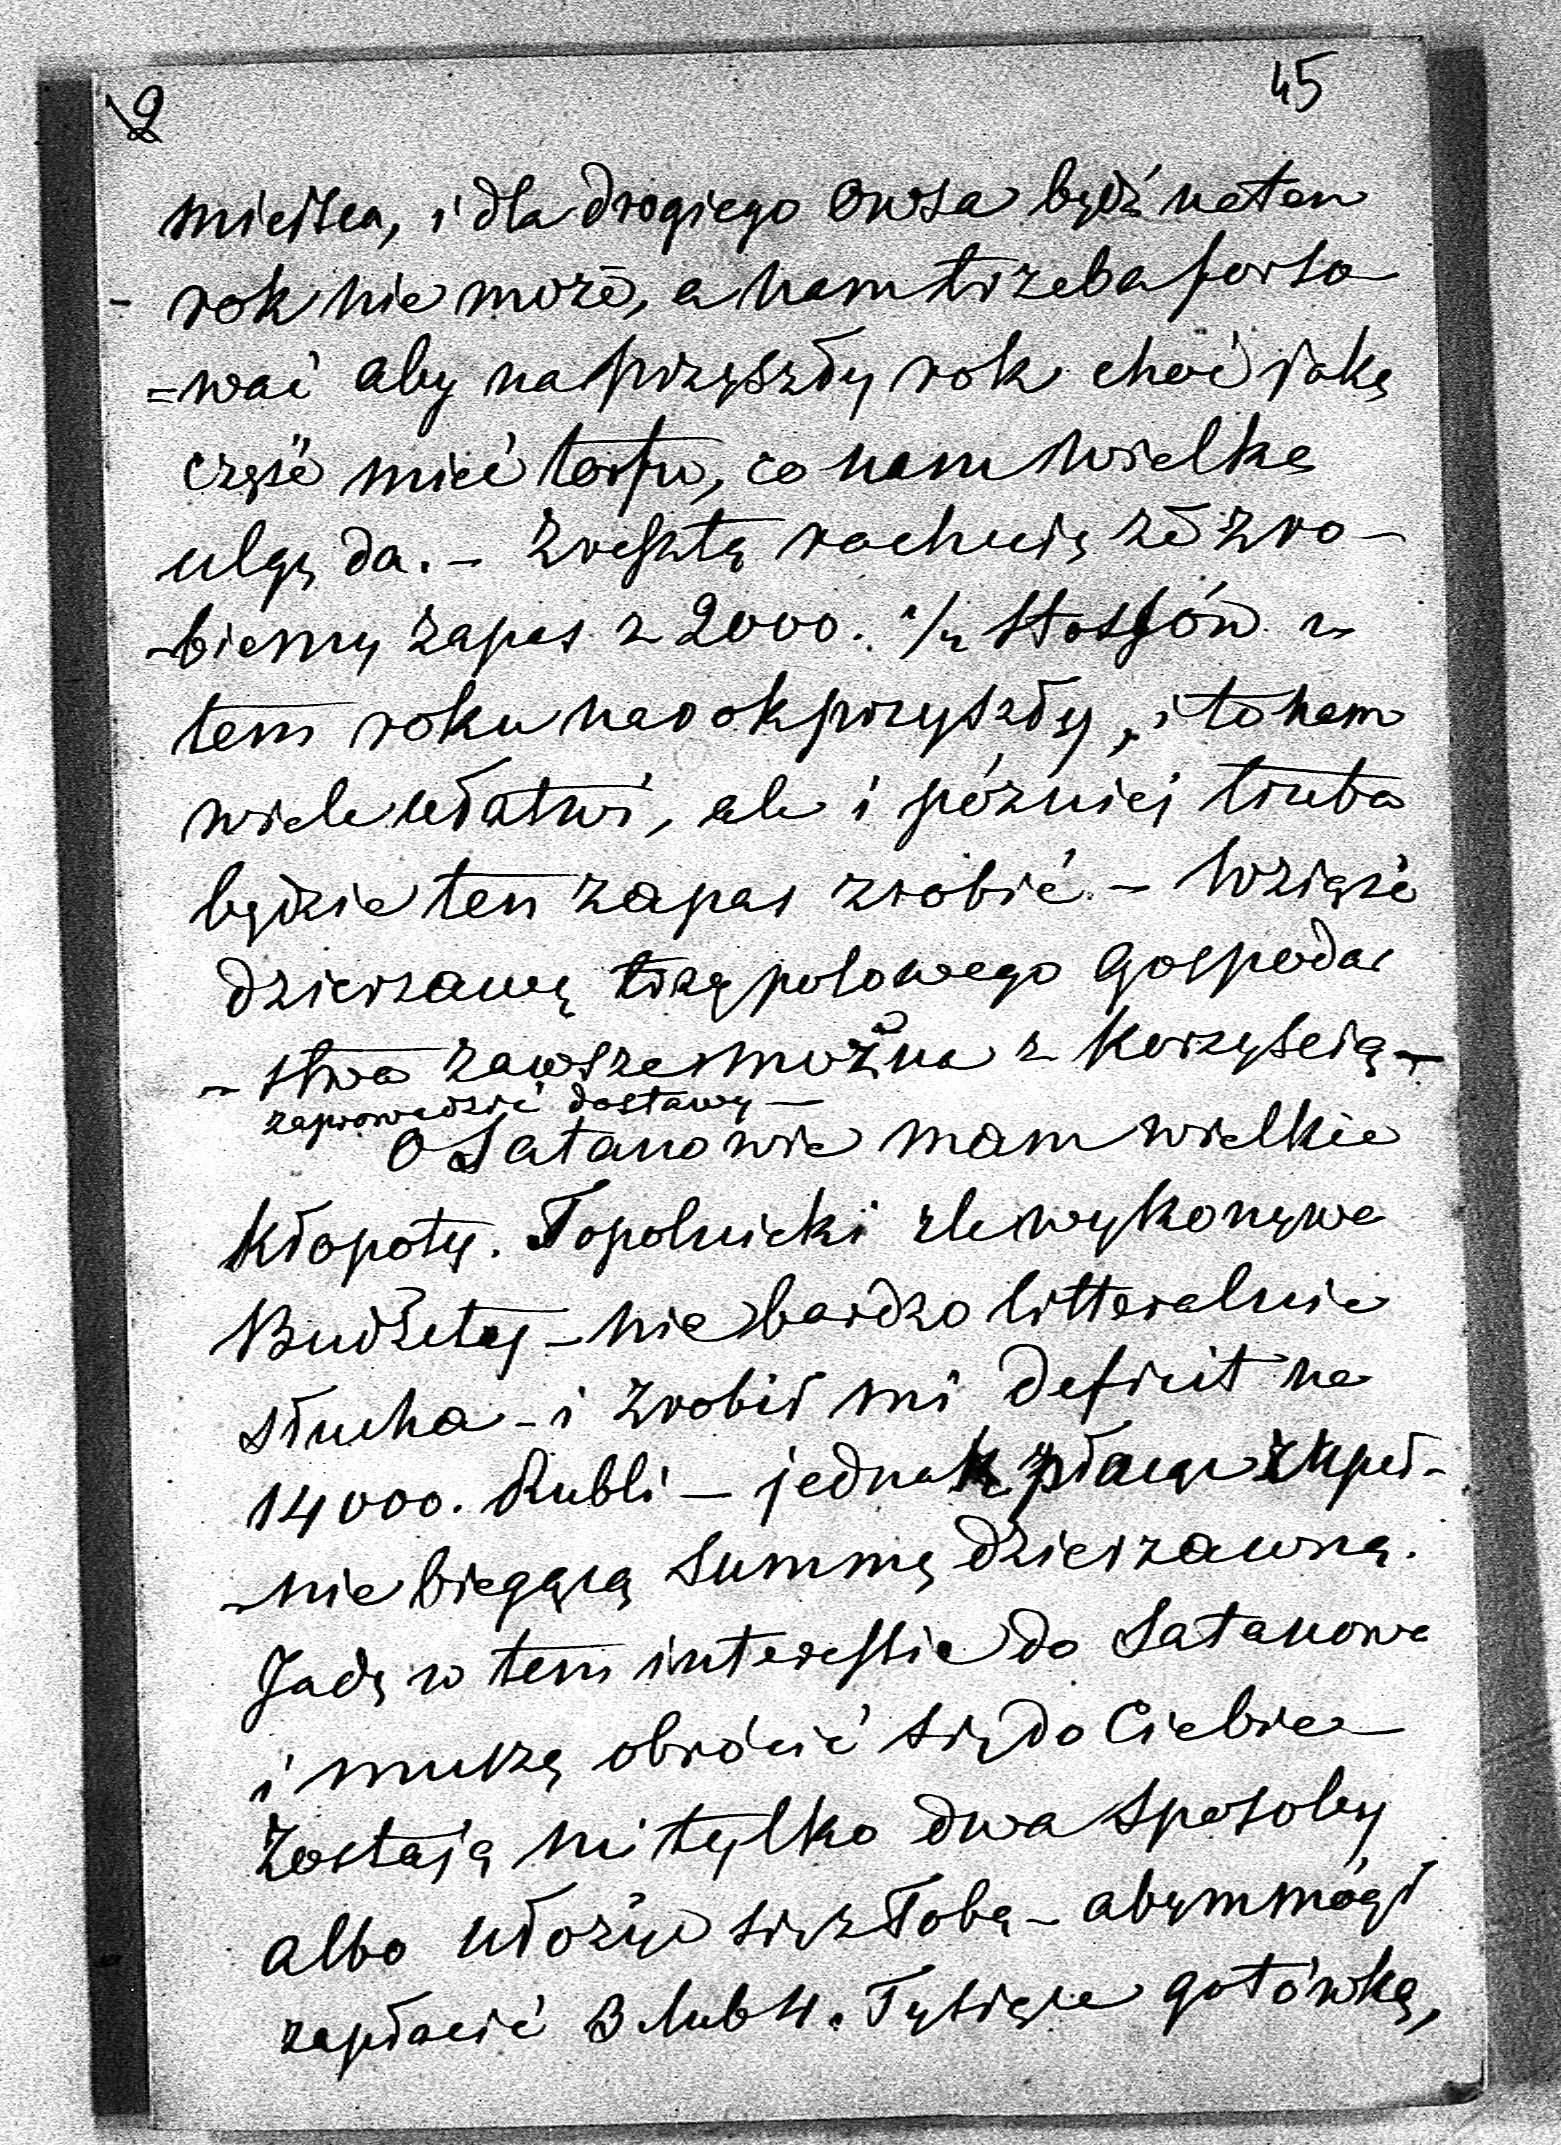 2 45
miejsca, i dla drogiego owsa bydź na ten
rok nie może, a nam trzeba forso
=wać aby na przyszły rok choć jaką
część mieć torfu, co nam wielką
ulgę da. – Zresztą rachuię że zro-
-biemy zapas z 2000. 1/2 stossów w
tem roku na rok przyszły, i to nam
wiele ułatwi, ale i pózniej trzeba
będzie ten zapas zrobić. – Wziąść
dzierzawę trzypolowego gospodar
-stwa zawsze można z korzyscią –
zaprowadzić dostawy –
O Satanowie mam wielkie
kłopoty. Topolnicki zle wykonywa
Budżety – nie bardzo litteralnie
słucha – i zrobił mi deficit na
14000. Rubli – jednak płacę zupeł-
-nie biegącą summę dzierzawną.
Jadę w tem interessie do Satanowa
i muszę obrócić się do Ciebie –
Zostają mi tylko dwa sposoby
albo ułożyć się z Tobą – abym mógł
zapłacić 3 lub 4. Tysiące gotówką,